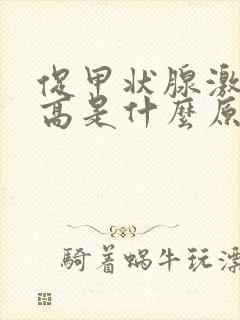 促甲状腺激
高是什麼原
騎着蝸牛玩漂